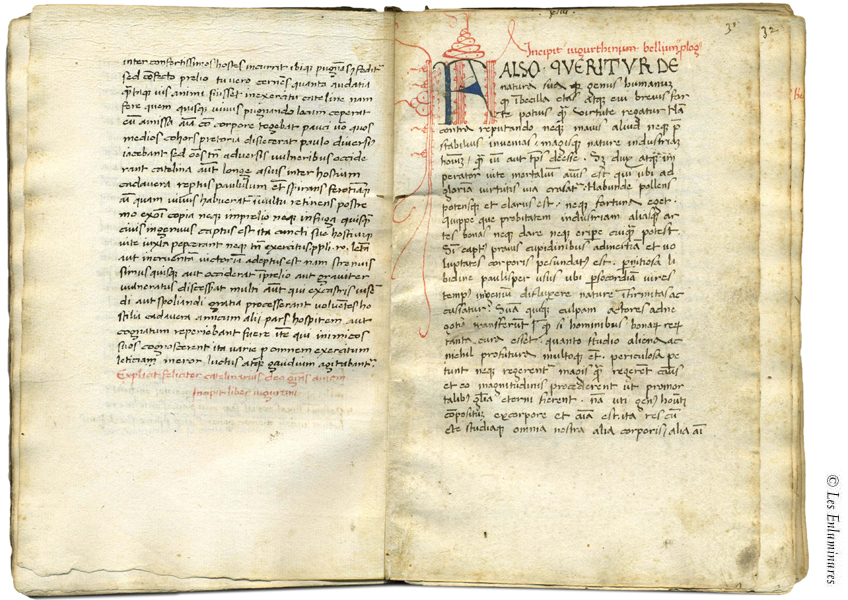 inter confertissimos hostes incurrit ibiq; pugnās 9fodit᷒
sed cōfecto prelio tu vero cerneres quanto audatia
q̄tūq; vis animi fuisset in exercitu catiline nam
fere quem quisq; vivus pugnando locum ceperat
eū amissa aīa cō corpore tegebat pauci vō quos
medios cohors pretoria disiecerat paulo diversi᷒
iacebant sed oēs tn̄ adversis vulneribus occide
rant catelina aut longe a suis inter hostium
cadavera reptus paululum et spirans ferotiāq;
aī quam vivus habuerat ī vultu retinens postre
mo ex oī copia neq; in prelio neq; in fuga quisq̄
civis ingenuus captus est ita cuncti sue hostiūq;
vite iuxta pepercerant neq; tn̄ exercitus ppli. ro. letā
aut incruentā victoria adeptus est nam strenuis
simus quisq; aut occiderat ī prelio aut graviter
vulneratus discesserat multi aūt qui ex castris vise
di aut spoliandi gratia processerant volvētes ho
stilia cadavera amicum alii pars hospitem aut
cognatum reperiebant fuere itē qui inimicos
suos cognoscerent ita varie p omnem exercitum
leticia, meror, luctus atq; gaudium agitabant᷒
Explicit feliciter catelinarius deo gr̄as amen
Incipit liber iugurtini
xiiii
31 32
Incipit iugurthinum bellum
FALSO QVERITVR DE
natura sua genus humanuȝ
q ībecilla atq; evi brevis for
te potius q̄ virtute regatur Nā
contra reputando neq; maius aliud neq; p
stabilius invenias magisq; nature industriam
houȝ q̄ vī aut tp̄s deesse. Sȝ dux atq; im
perator vite mortalium aīus est qui ubi ad
gloriam virtutis via grasat᷒ habunde pollens
potensq; et clarus est. neq; fortuna eget.
quippe que probitatem industriam aliasq; ar
tes bonas neq; dare neq; eripe cuiq̄ potest.
Sī capt᷒ pravis cupidinibus ad inertiā et vo
luptates corporis pesundat᷒ est. pnitiosa li
bidine paulisper usus ubi p socordiam vires
temp᷒ ingenium difluxere nature īfirmitas ac
cusatur. Sua quisq; culpam actores ad ne
gotia transferūt q si hominibus bonaȝ reȝ
tanta cura esset. quanto studio aliena ac
nichil profutura multoq; et periculosa pe
tunt neq; regerent᷒ magis q̄ regerēt casus
et eo magnitudinis procederent ut p mor
talib᷒ gl̄ia eterni fierent. nā uti gen᷒ hoīū
cōpositū ex corpore et aīa est. ita res cū
cte studiaq; omnia nostra alia corporis alia aī
© Les Enluminures